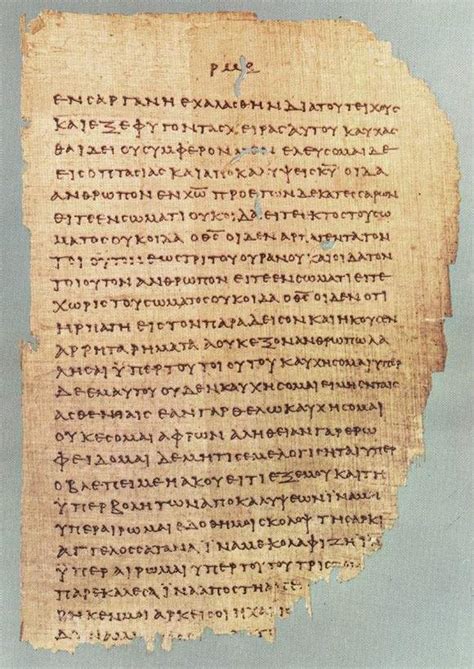 ΕΝ ΣΑΡΓΑΝΗ ΕΧΑΛΑΣΘΗΝ ΔΙΑ ΤΟΥ ΤΕΙΧΟΥΣ
ΚΑΙ ΕΞΕΦΥΓΟΝ ΤΑΣ ΧΕΙΡΑΣ ΑΥΤΟΥ ΚΑΥΧΑΣ
ΘΑΙ ΔΕΙ ΟΥ ΣΥΜΦΕΡΟΝ ΜΕΝ ΕΛΕΥΣΟΜΑΙ ΔΕ
ΕΙΣ ΟΠΤΑΣΙΑΣ ΚΑΙ ΑΠΟΚΑΛΥΨΕΙΣ Κ̅Υ̅ ΟΙΔΑ
ΑΝΘΡΩΠΟΝ ΕΝ Χ̅Ω̅ ΠΡΟ ΕΤΩΝ ΔΕΚΑΤΕΣΣΑΡΩΝ
ΕΙΤΕ ΕΝ ΣΩΜΑΤΙ ΟΥΚ ΟΙΔΑ ΕΙΤΕ ΕΚΤΟΣ ΤΟΥ ΣΩ
ΜΑΤΟΣ ΟΥΚ ΟΙΔΑ Ο Θ̅Σ̅ ΟΙΔΕΝ ΑΡΠΑΓΕΝΤΑ ΤΟΝ
ΤΟΙΟΥΤΟΝ ΕΩΣ ΤΡΙΤΟΥ ΟΥΡΑΝΟΥ ΚΑΙ ΟΙΔΑ ΤΟΝ
ΤΟΙΟΥΤΟΝ ΑΝΘΡΩΠΟΝ ΕΙΤΕ ΕΝ ΣΩΜΑΤΙ ΕΙΤΕ
ΧΩΡΙΣ ΤΟΥ ΣΩΜΑΤΟΣ ΟΥΚ ΟΙΔΑ Ο Θ̅Σ̅ ΟΙΔΕΝ ΟΤΙ
ΗΡΠΑΓΗ ΕΙΣ ΤΟΝ ΠΑΡΑΔΕΙΣΟΝ ΚΑΙ ΗΚΟΥΣΕΝ
ΑΡΡΗΤΑ ΡΗΜΑΤΑ Α ΟΥΚ ΕΞΟΝ ΑΝΘΡΩΠΩ ΛΑ
ΛΗΣΑΙ ΥΠΕΡ ΤΟΥ ΤΟΙΟΥΤΟΥ ΚΑΥΧΗΣΟΜΑΙ ΥΠΕΡ
ΔΕ ΕΜΑΥΤΟΥ ΟΥΔΕΝ ΚΑΥΧΗΣΟΜΑΙ ΕΙ ΜΗ ΕΝ ΤΑΙΣ
ΑΣΘΕΝΕΙΑΙΣ ΕΑΝ ΓΑΡ ΘΕΛΩ ΚΑΥΧΗΣΟΜΑΙ
ΟΥΚ ΕΣΟΜΑΙ ΑΦΡΩΝ ΑΛΗΘΕΙΑΝ ΓΑΡ ΕΡΩ
ΦΕΙΔΟΜΑΙ ΔΕ ΜΗ ΤΙΣ ΕΜΕ ΛΟΓΙΣΗΤΑΙ ΥΠΕΡ
Ο ΒΛΕΠΕΙ ΜΕ Η ΑΚΟΥΕΙ ΤΙ ΕΞ ΕΜΟΥ ΚΑΙ ΤΗ
ΥΠΕΡΒΟΛΗ ΤΩΝ ΑΠΟΚΑΛΥΨΕΩΝ ΪΝΑ ΜΗ
ΥΠΕΡΑΙΡΩΜΑΙ ΕΔΟΘΗ ΜΟΙ ΣΚΟΛΟΨ ΤΗ ΣΑΡΚΙ
ΑΓΓΕΛΟΣ ΣΑΤΑΝΑ ΪΝΑ ΜΕ ΚΟΛΑΦΙΖΗ Ϊ
ΥΠΕΡΑΙΡΩΜΑΙ ΥΠΕΡ ΤΟΥΤΟΥ ΤΡΙΣ
ΠΑΡΕΚΑΛΕΣΑ ΪΝΑ ΑΠΟΣΤΗ ΑΠ
ΡΗΚΕΝ ΜΟΙ ΑΡΚΕΙ ΣΟΙ Η ΧΑΡΙΣ
ΔΥΝΑΜ